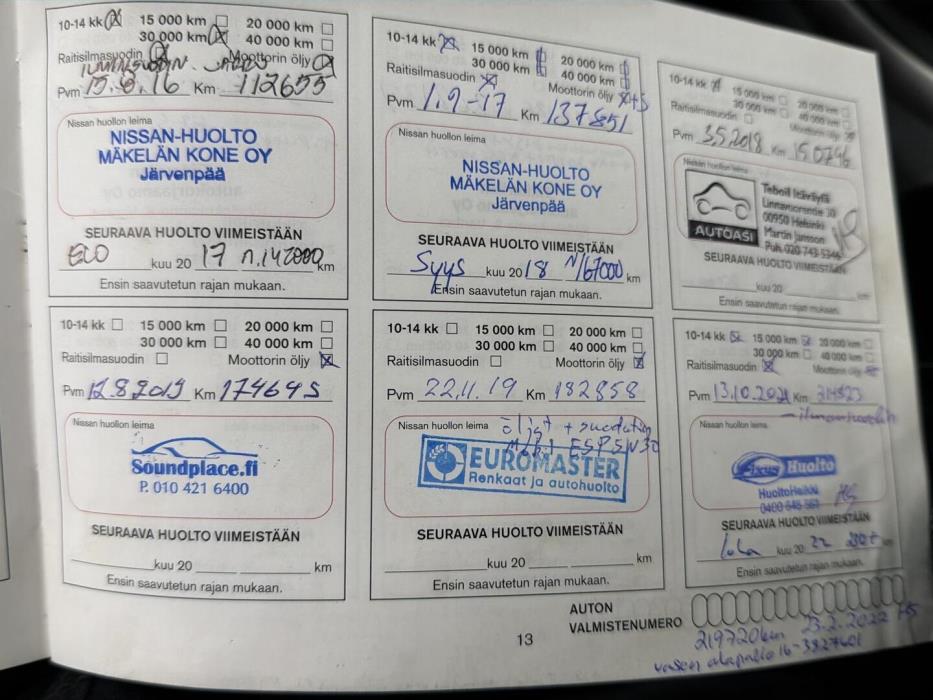 10-14 kk 15 000 km 20 000 km
30 000 km 40 000 km
Raitisilmasuodin Moottorin öljy
Pvm 15.8.16 Km 112655
Nissan huollon leima
NISSAN-HUOLTO
MÄKELÄN KONE OY
Järvenpää
SEURAAVA HUOLTO VIIMEISTÄÄN
ECO kuu 20 17 n.142000 km
Ensin saavutetun rajan mukaan.
10-14 kk 15 000 km 20 000 km
30 000 km 40 000 km
Raitisilmasuodin Moottorin öljy +S
Pvm 1.9-17 Km 137851
Nissan huollon leima
NISSAN-HUOLTO
MÄKELÄN KONE OY
Järvenpää
SEURAAVA HUOLTO VIIMEISTÄÄN
Syys kuu 20 18 N/67000 km
Ensin saavutetun rajan mukaan.
10-14 kk 15 000 km 20 000 km
30 000 km 40 000 km
Raitisilmasuodin Moottorin öljy
Pvm 3.5.2018 Km 150746
Nissan huollon leima
AUTOASI
Teboil Itäväylä
Linnanrange 30
00950 Helsinki
Martin Jansson
Puh. 020 743 5346
SEURAAVA HUOLTO VIIMEISTÄÄN
kuu 20 km
Ensin saavutetun rajan mukaan.
10-14 kk 15 000 km 20 000 km
30 000 km 40 000 km
Raitisilmasuodin Moottorin öljy
Pvm 12.8.2019 Km 174645
Nissan huollon leima
Soundplace.fi
P. 010 421 6400
SEURAAVA HUOLTO VIIMEISTÄÄN
kuu 20 km
Ensin saavutetun rajan mukaan.
10-14 kk 15 000 km 20 000 km
30 000 km 40 000 km
Raitisilmasuodin Moottorin öljy
Pvm 22.11.19 Km 182858
Nissan huollon leima öljyt + suodatin
Mobil ESP 5W30
EUROMASTER
Renkaat ja autohuolto
SEURAAVA HUOLTO VIIMEISTÄÄN
kuu 20 km
Ensin saavutetun rajan mukaan.
10-14 kk 15 000 km 20 000 km
30 000 km 40 000 km
Raitisilmasuodin Moottorin öljy
Pvm 13.10.2021 Km
Nissan huollon leima
Huolto
HuoltoHeikki
SEURAAVA HUOLTO VIIMEISTÄÄN
loka kuu 20 22 km
Ensin saavutetun rajan mukaan.
AUTON
VALMISTENUMERO
13
219720km 23.2.2022 HS
vasen alapallo 16-3927601